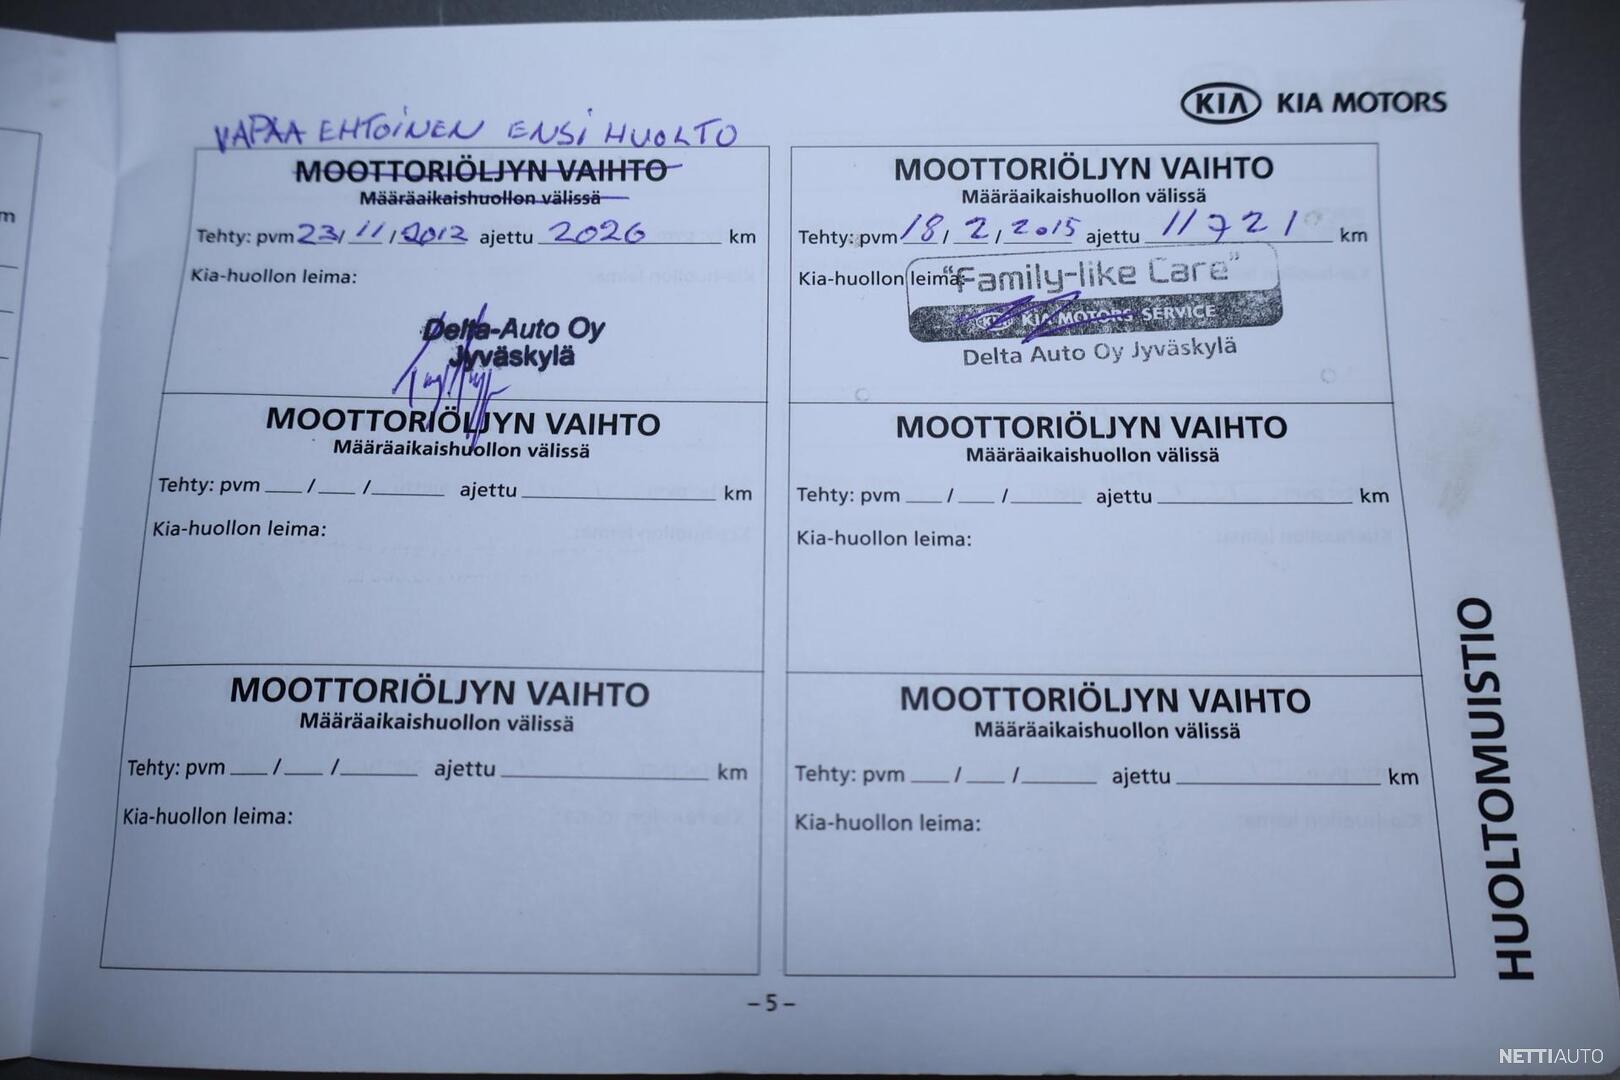 KIA KIA MOTORS
VAPAA EHTOINEN ENSI HUOLTO
MOOTTORIÖLJYN VAIHTO
Määräaikaishuollon välissä
Tehty: pvm 23/11/2012 ajettu 2026 km
Kia-huollon leima:
Delta-Auto Oy
Jyväskylä
MOOTTORIÖLJYN VAIHTO
Määräaikaishuollon välissä
Tehty: pvm 18/2/2015 ajettu 11721 km
Kia-huollon leima:
"Family-like Care"
KIA KIA MOTORS SERVICE
Delta Auto Oy Jyväskylä
MOOTTORIÖLJYN VAIHTO
Määräaikaishuollon välissä
Tehty: pvm ___/___/______ ajettu ____________ km
Kia-huollon leima:
MOOTTORIÖLJYN VAIHTO
Määräaikaishuollon välissä
Tehty: pvm ___/___/______ ajettu ____________ km
Kia-huollon leima:
MOOTTORIÖLJYN VAIHTO
Määräaikaishuollon välissä
Tehty: pvm ___/___/______ ajettu ____________ km
Kia-huollon leima:
MOOTTORIÖLJYN VAIHTO
Määräaikaishuollon välissä
Tehty: pvm ___/___/______ ajettu ____________ km
Kia-huollon leima:
HUOLTOMUISTIO
– 5 –
m
NETTIAUTO